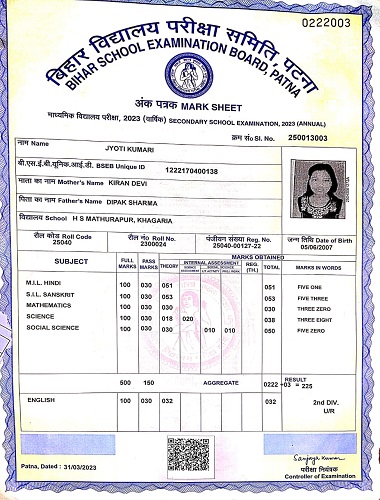 0222003
बिहार विद्यालय परीक्षा समिति, पटना
BIHAR SCHOOL EXAMINATION BOARD, PATNA
अंक पत्रक MARK SHEET
माध्यमिक विद्यालय परीक्षा, 2023 (वार्षिक) SECONDARY SCHOOL EXAMINATION, 2023 (ANNUAL)
क्रम सं० Sl. No. 250013003
नाम Name JYOTI KUMARI
बी.एस.ई.बी.यूनिक.आई.डी. BSEB Unique ID 1222170400138
माता का नाम Mother's Name KIRAN DEVI
पिता का नाम Father's Name DIPAK SHARMA
विद्यालय School H S MATHURAPUR, KHAGARIA
रौल कोड Roll Code रौल न० Roll No. पंजीयन संख्या Reg. No. जन्म तिथि Date of Birth
25040 2300024 25040-00127-22 05/06/2007
MARKS OBTAINED
SUBJECT FULL MARKS PASS MARKS THEORY INTERNAL ASSESSMENT REG. (TH.) TOTAL MARKS IN WORDS
SCIENCE SOCIAL SCIENCE
M.I.L. HINDI 100 030 051 051 FIVE ONE
S.I.L. SANSKRIT 100 030 053 053 FIVE THREE
MATHEMATICS 100 030 030 030 THREE ZERO
SCIENCE 100 030 018 020 038 THREE EIGHT
SOCIAL SCIENCE 100 030 030 010 010 050 FIVE ZERO
500 150 AGGREGATE 0222 +03 = 225 RESULT
ENGLISH 100 030 032 032 2nd DIV.
U/R
Patna, Dated : 31/03/2023
Sanjay Kumar
परीक्षा नियंत्रक
Controller of Examination